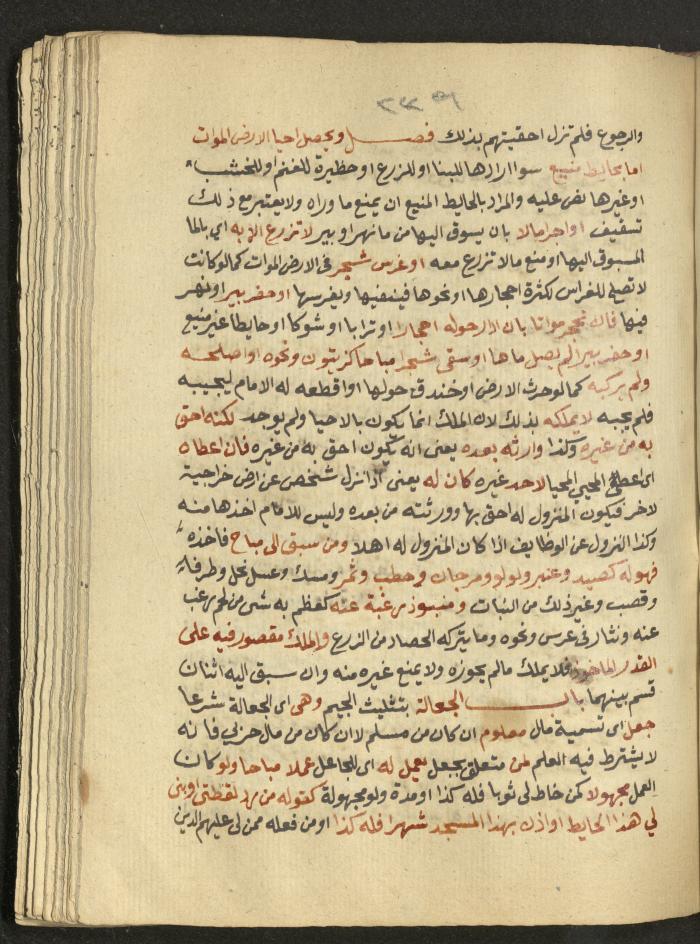 والرجوع فلم تزل احقيتهم بذلك فصل ويحصل احيا الارض الموات
اما بحايط منيع سوا ارادها للبنا او للزرع او حظيرة للغنم او للخشب
او غيرها نص عليه والمراد بالحايط المنيع ان يمنع ما وراه ولا يعتبر مع ذلك
تسقيف او اجرا مالا بان يسوق اليها من ما نهر او بير لا تزرع الا به اي بالما
المسوق اليها او منع ما لا تزرع معه او غرس شجر في الارض الموات كما لو كانت
لا تصلح للغراس لكثرة احجارها او نحوها فينقيها ويغرسها او حفر بير او نهر
فيها فان تحجر مواتا بان ادار حوله احجارا او ترابا او شوكا او حايطا غير منيع
او حفر بيرا لم يصل ماها او سقى شجرا مباحا كزيتون ونحوه او اصلحه
ولم يركبه كما لو حرث الارض او خندق حولها او اقطعه له الامام ليحييه
فلم يحيه لا يملكه بذلك لان الملك انما يكون بالاحيا ولم يوجد لكنه احق
به من غيره وكذا وارثه بعده يعني انه يكون احق به من غيره فان اعطاه
اي اعطى المحيي المحيا لاحد غيره كان له يعني اذا نزل شخص عن ارض خراجية
لاخر فيكون المنزول له احق بها وورثته من بعده وليس للامام اخذها منه
وكذا النزول عن الوظايف اذا كان المنزول له اهلا ومن سبق الى مباح فاخذه
فهو له كصيد وعنبر ولولو ومرجان وحطب وثمر ومسك وعسل نحل وطرفا
وقصب وغير ذلك من النبات ومنبوذ رغبة عنه كعظم به شي من لحم رغب
عنه ونثار في عرس ونحوه وما يتركه الحصاد من الزرع والملك مقصور فيه على
القدر الماخوذ فلا يملك ما لم يحوزه ولا يمنع غيره منه وان سبق اليه اثنان
قسم بينهما باب الجعالة بتثليث الجيم وهي اي الجعالة شرعا
جعل اي تسمية مال معلوم ان كان من مسلم لا ان كان من مال حربي فانه
لا يشترط فيه العلم لمن متعلق بجعل يعمل له اي للجاعل عملا مباحا ولو كان
العمل مجهولا كمن خاط لي ثوبا فله كذا او مدة ولو مجهولة كقوله من رد لقطتي او بنى
لي هذا الحايط او اذن بهذا المسجد شهرا فله كذا او من فعله ممن لي عليهم الدين